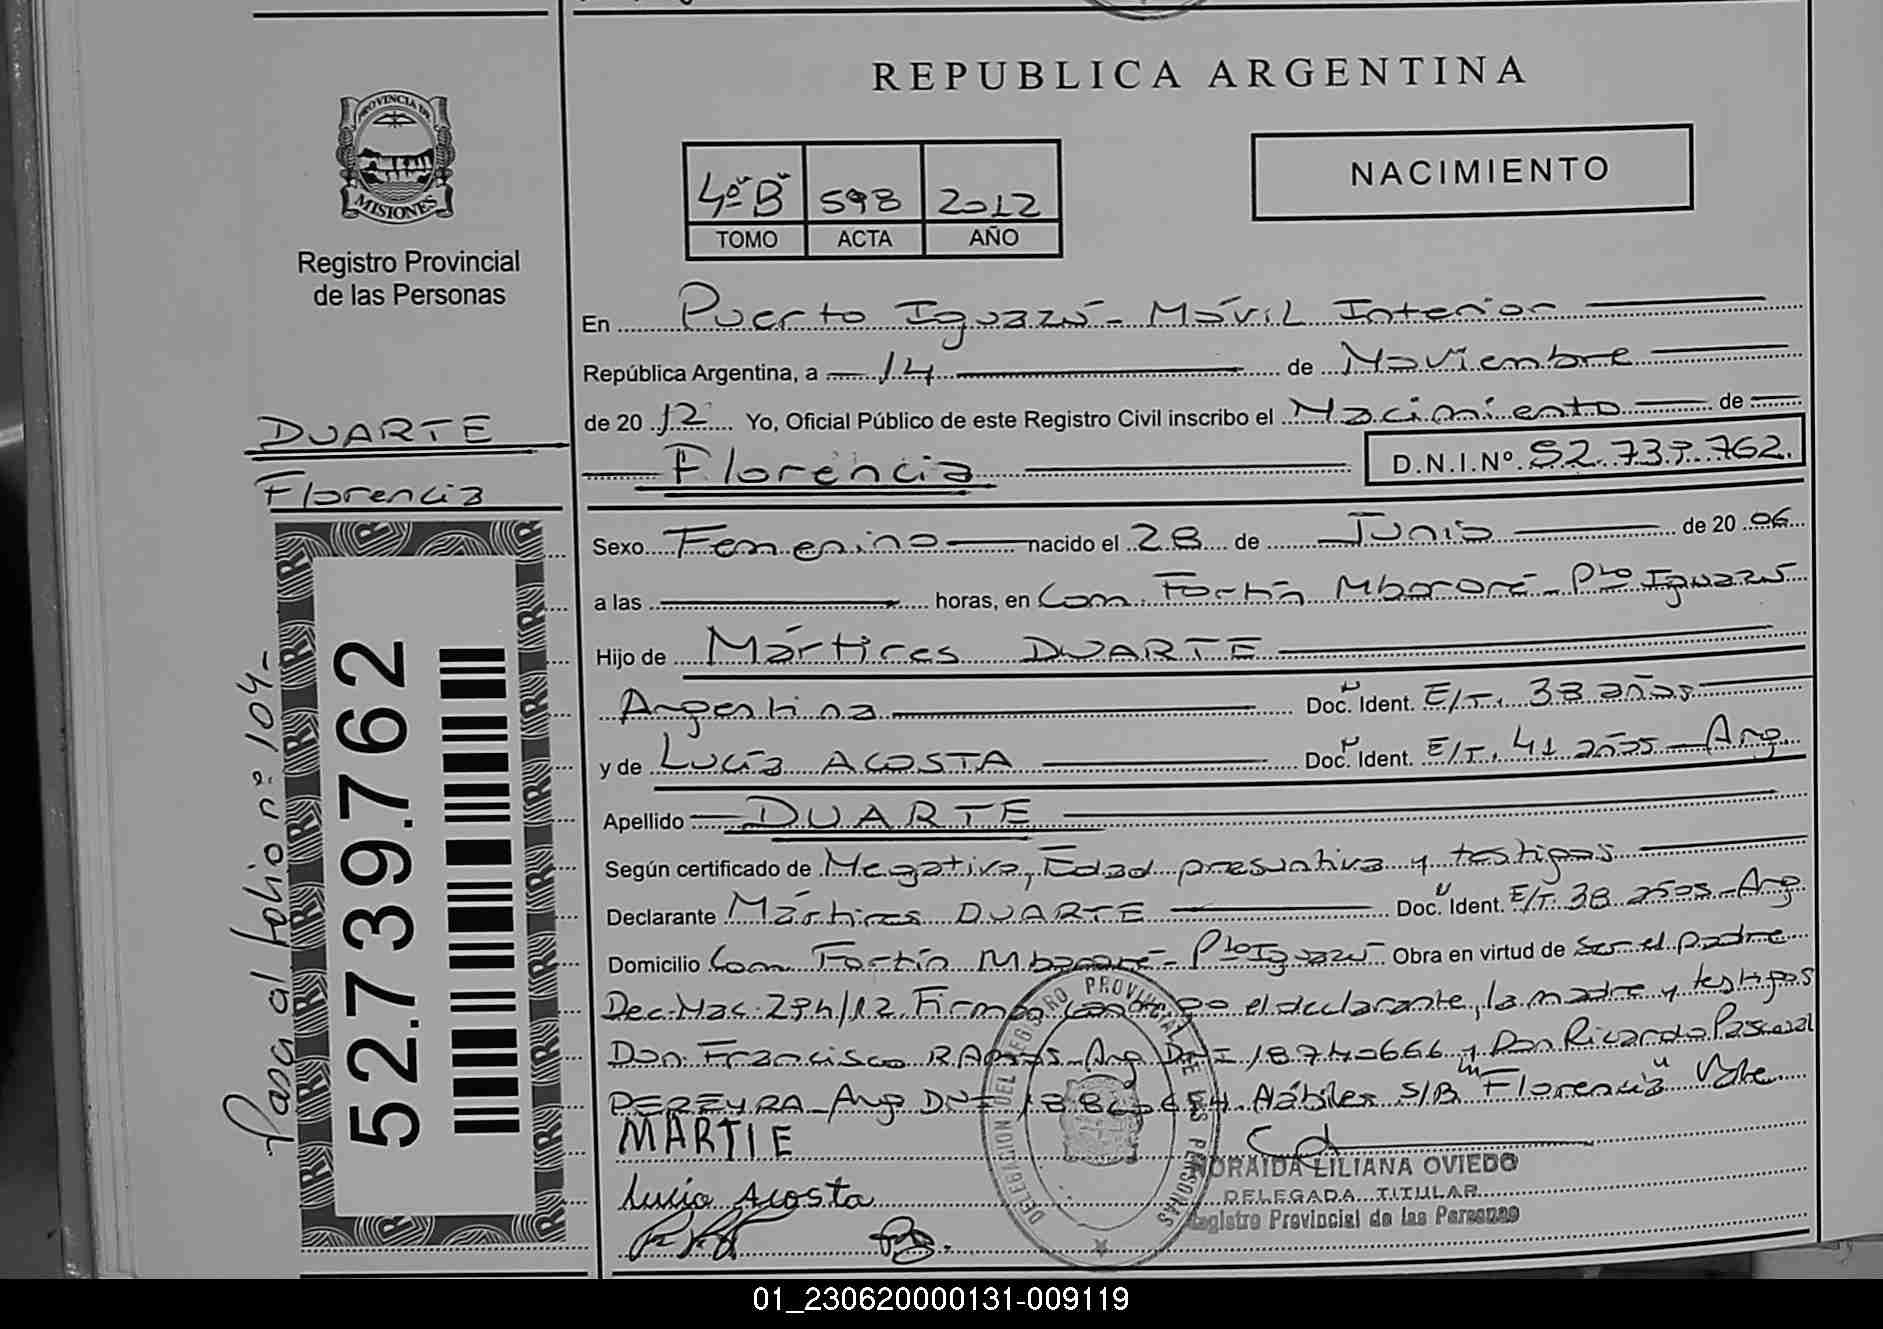 REPUBLICA ARGENTINA
PROVINCIA DE
MISIONES
Registro Provincial
de las Personas
4º "B" 598 2012
TOMO ACTA AÑO
NACIMIENTO
En Puerto Iguazú - Móvil Interior
República Argentina, a 14 de Noviembre
de 20 12 Yo, Oficial Público de este Registro Civil inscribo el Nacimiento de
Florencia D.N.I.Nº. 52.739.762.
DUARTE
Florencia
52.739.762
Pasa al folio nº: 104-
Sexo Femenino nacido el 28 de Junio de 20 06
a las horas, en Com. Fortín Mbororé - Pto Iguazú
Hijo de Mártires DUARTE
Argentina Doc. Ident. E/T. 38 años
y de Lucía ACOSTA Doc. Ident. E/T. 41 años - Arg
Apellido DUARTE
Según certificado de Negativa, Edad presuntiva y testigos
Declarante Mártires DUARTE Doc. Ident. E/T. 38 años - Arg
Domicilio Com. Fortín Mbororé - Pto Iguazú Obra en virtud de ser el padre
Dec. Nac. 294/12. Firman conmigo el declarante, la madre y testigos
Don Francisco RAMOS - Arg DNI 18740666 y Don Ricardo Pascual
PEREYRA - Arg DNI Hábiles S/B "Florencia" Vale
MARTIE
Lucia Acosta
DELEGACION DEL REGISTRO PROVINCIAL DE LAS PERSONAS
ZORAIDA LILIANA OVIEDO
DELEGADA TITULAR
Registro Provincial de las Personas
01_230620000131-009119